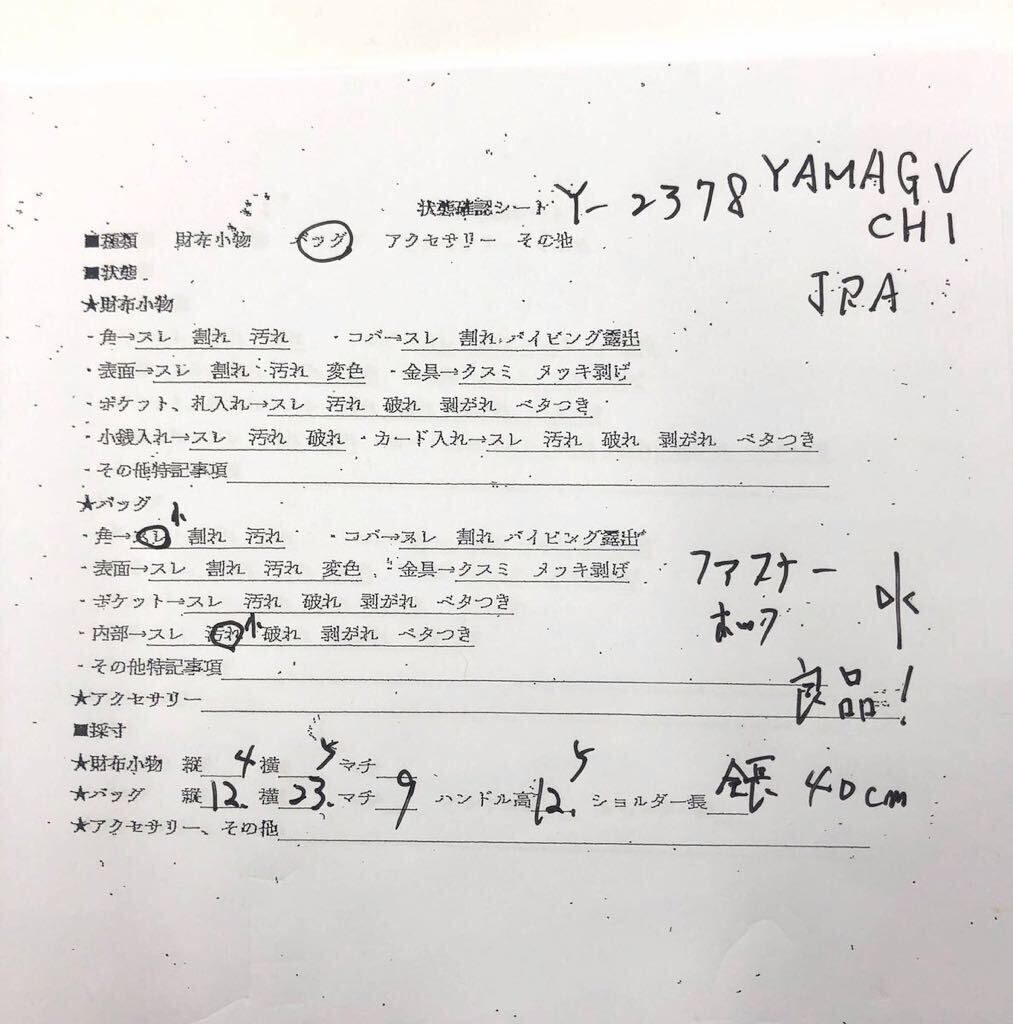 状態確認シート Y-2378 YAMAGU
CHI
■種類 財布小物 バッグ アクセサリー その他
JRA
■状態
★財布小物
・角→スレ 割れ 汚れ ・コバ→スレ 割れ パイピング露出
・表面→スレ 割れ 汚れ 変色 ・金具→クスミ メッキ剥げ
・ポケット、札入れ→スレ 汚れ 破れ 剥がれ ベタつき
・小銭入れ→スレ 汚れ 破れ ・カード入れ→スレ 汚れ 破れ 剥がれ ベタつき
・その他特記事項
★バッグ
・角→スレ小 割れ 汚れ ・コバ→スレ 割れ パイピング露出
・表面→スレ 割れ 汚れ 変色 ・金具→クスミ メッキ剥げ
ファスナー
・ポケット→スレ 汚れ 破れ 剥がれ ベタつき
ホック
・内部→スレ 汚れ小 破れ 剥がれ ベタつき
・その他特記事項
良品!
★アクセサリー
■採寸
★財布小物 縦 横 マチ
★バッグ 縦 12.4 横 23.5 マチ 9 ハンドル高 12.5 ショルダー長 全長 40cm
★アクセサリー、その他